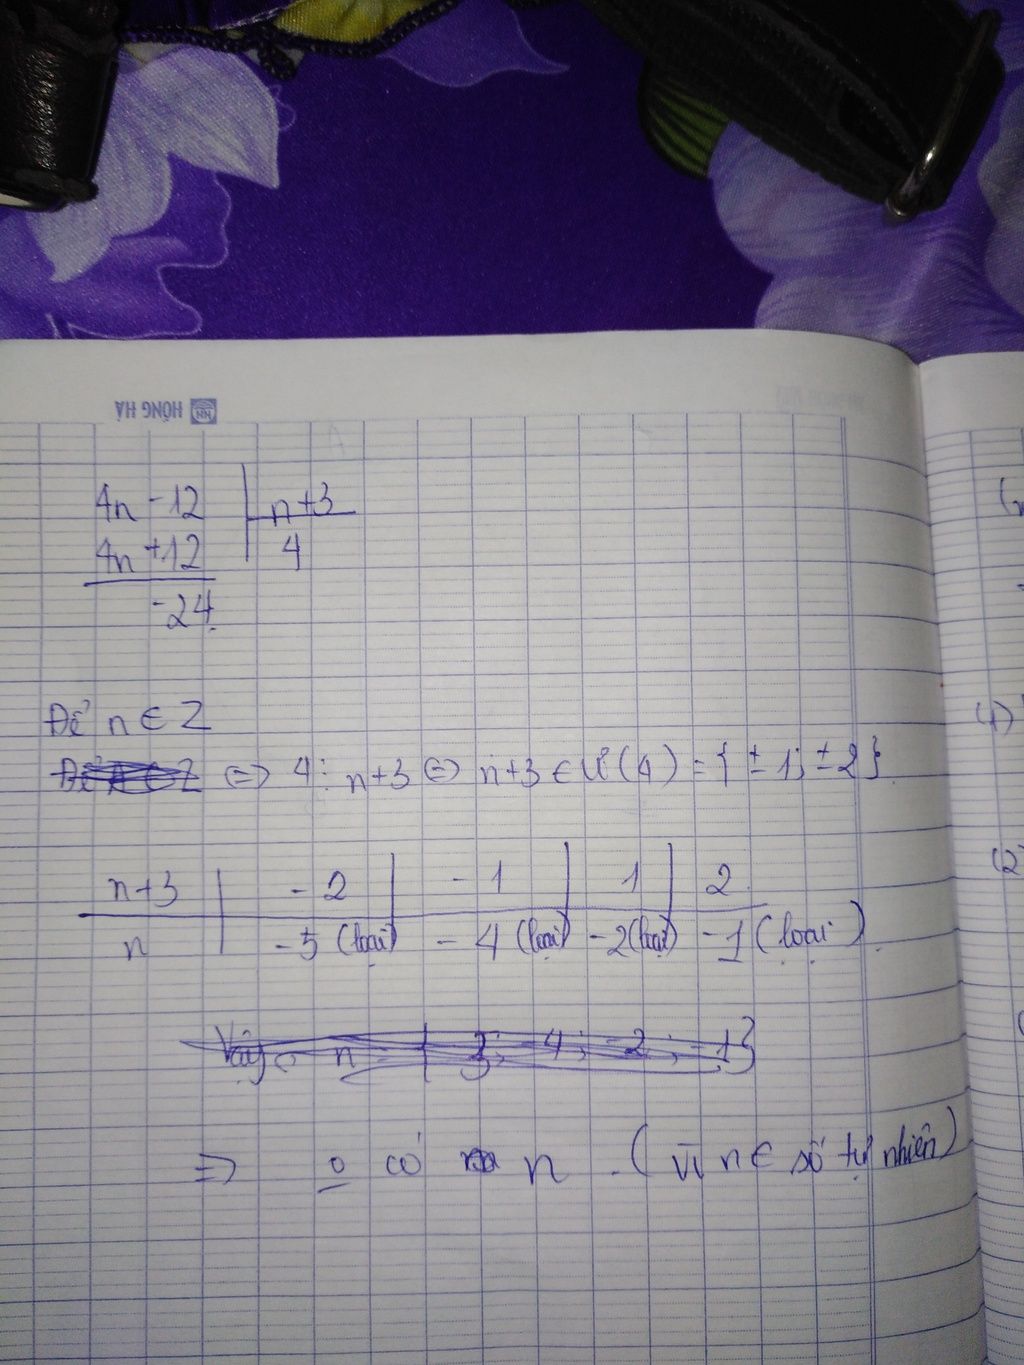 HỒNG HÀ
4n - 12 | n+3
4n + 12 | 4
-24
Để n ∈ Z
⇔ 4 ⋮ n+3 ⇔ n+3 ∈ Ư(4) = { ± 1; ± 2 }
n+3 | -2 | -1 | 1 | 2
n | -5 (loại) | -4 (loại) | -2 (loại) | -1 (loại)
Vậy n { 3; -4; -2; -1}
⇒ o có n. (vì n ∈ số tự nhiên)
(1)
(2)